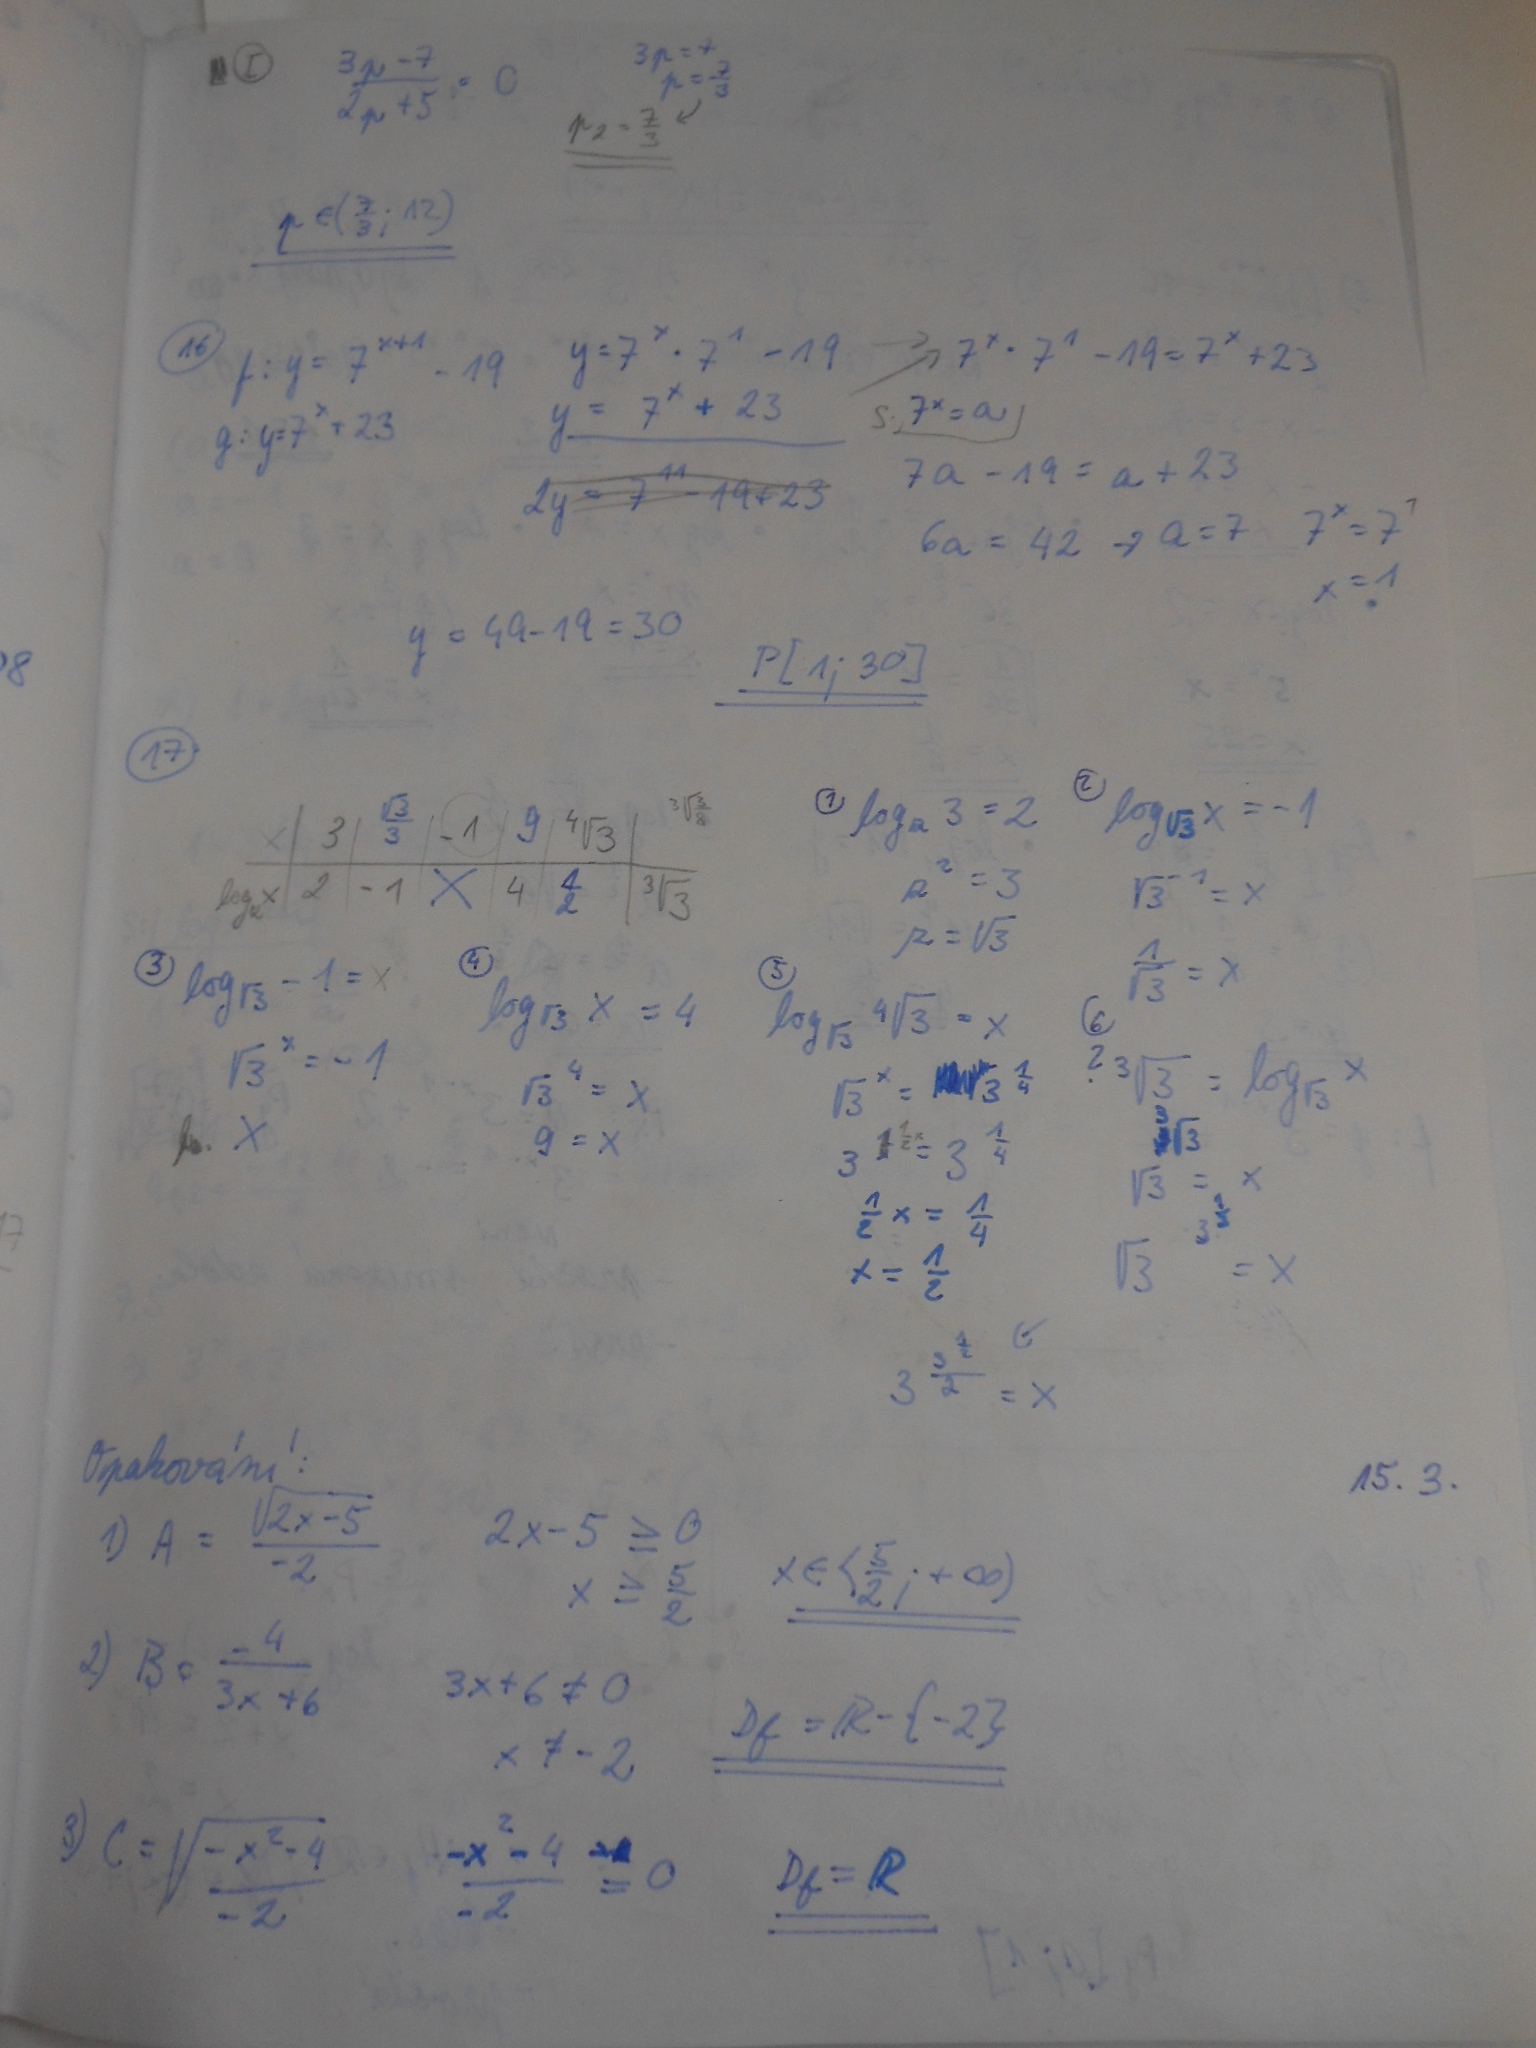 I  (3p-7)/(2p+5) = 0  3p = 7
p = 7/3
p₂ = 7/3
p ∈ (7/3; 12)
16  f: y = 7^(x+1) - 19  y = 7^x · 7^1 - 19  7^x · 7^1 - 19 = 7^x + 23
g: y = 7^x + 23  y = 7^x + 23  s. 7^x = a
2y = 7^11 - 19 + 23  7a - 19 = a + 23
6a = 42 → a = 7  7^x = 7^1
x = 1
y = 49 - 19 = 30
P[1; 30]
17
x | 3 | √3/3 | -1 | 9 | ⁴√3 |
logₐx | 2 | -1 | X | 4 | 1/2 | ³√3
① logₐ 3 = 2
a² = 3
a = √3
② log_√3 x = -1
√3^-1 = x
1/√3 = x
③ log_√3 -1 = x
√3^x = -1
X
④ log_√3 x = 4
√3^4 = x
9 = x
⑤ log_√3 ⁴√3 = x
√3^x = 3^(1/4)
3^(1/2 x) = 3^(1/4)
1/2 x = 1/4
x = 1/2
⑥
? ³√3 = log_√3 x
√3^(³√3) = x
√3 = x
3 = x
Opakování:
15. 3.
1) A = √(2x-5)/-2  2x-5 ≥ 0
x ≥ 5/2  x ∈ ⟨5/2; +∞)
2) B = -4/(3x+6)  3x+6 ≠ 0
x ≠ -2  Df = R - {-2}
3) C = √((-x²-4)/-2)  (-x²-4)/-2 ≥ 0  Df = R